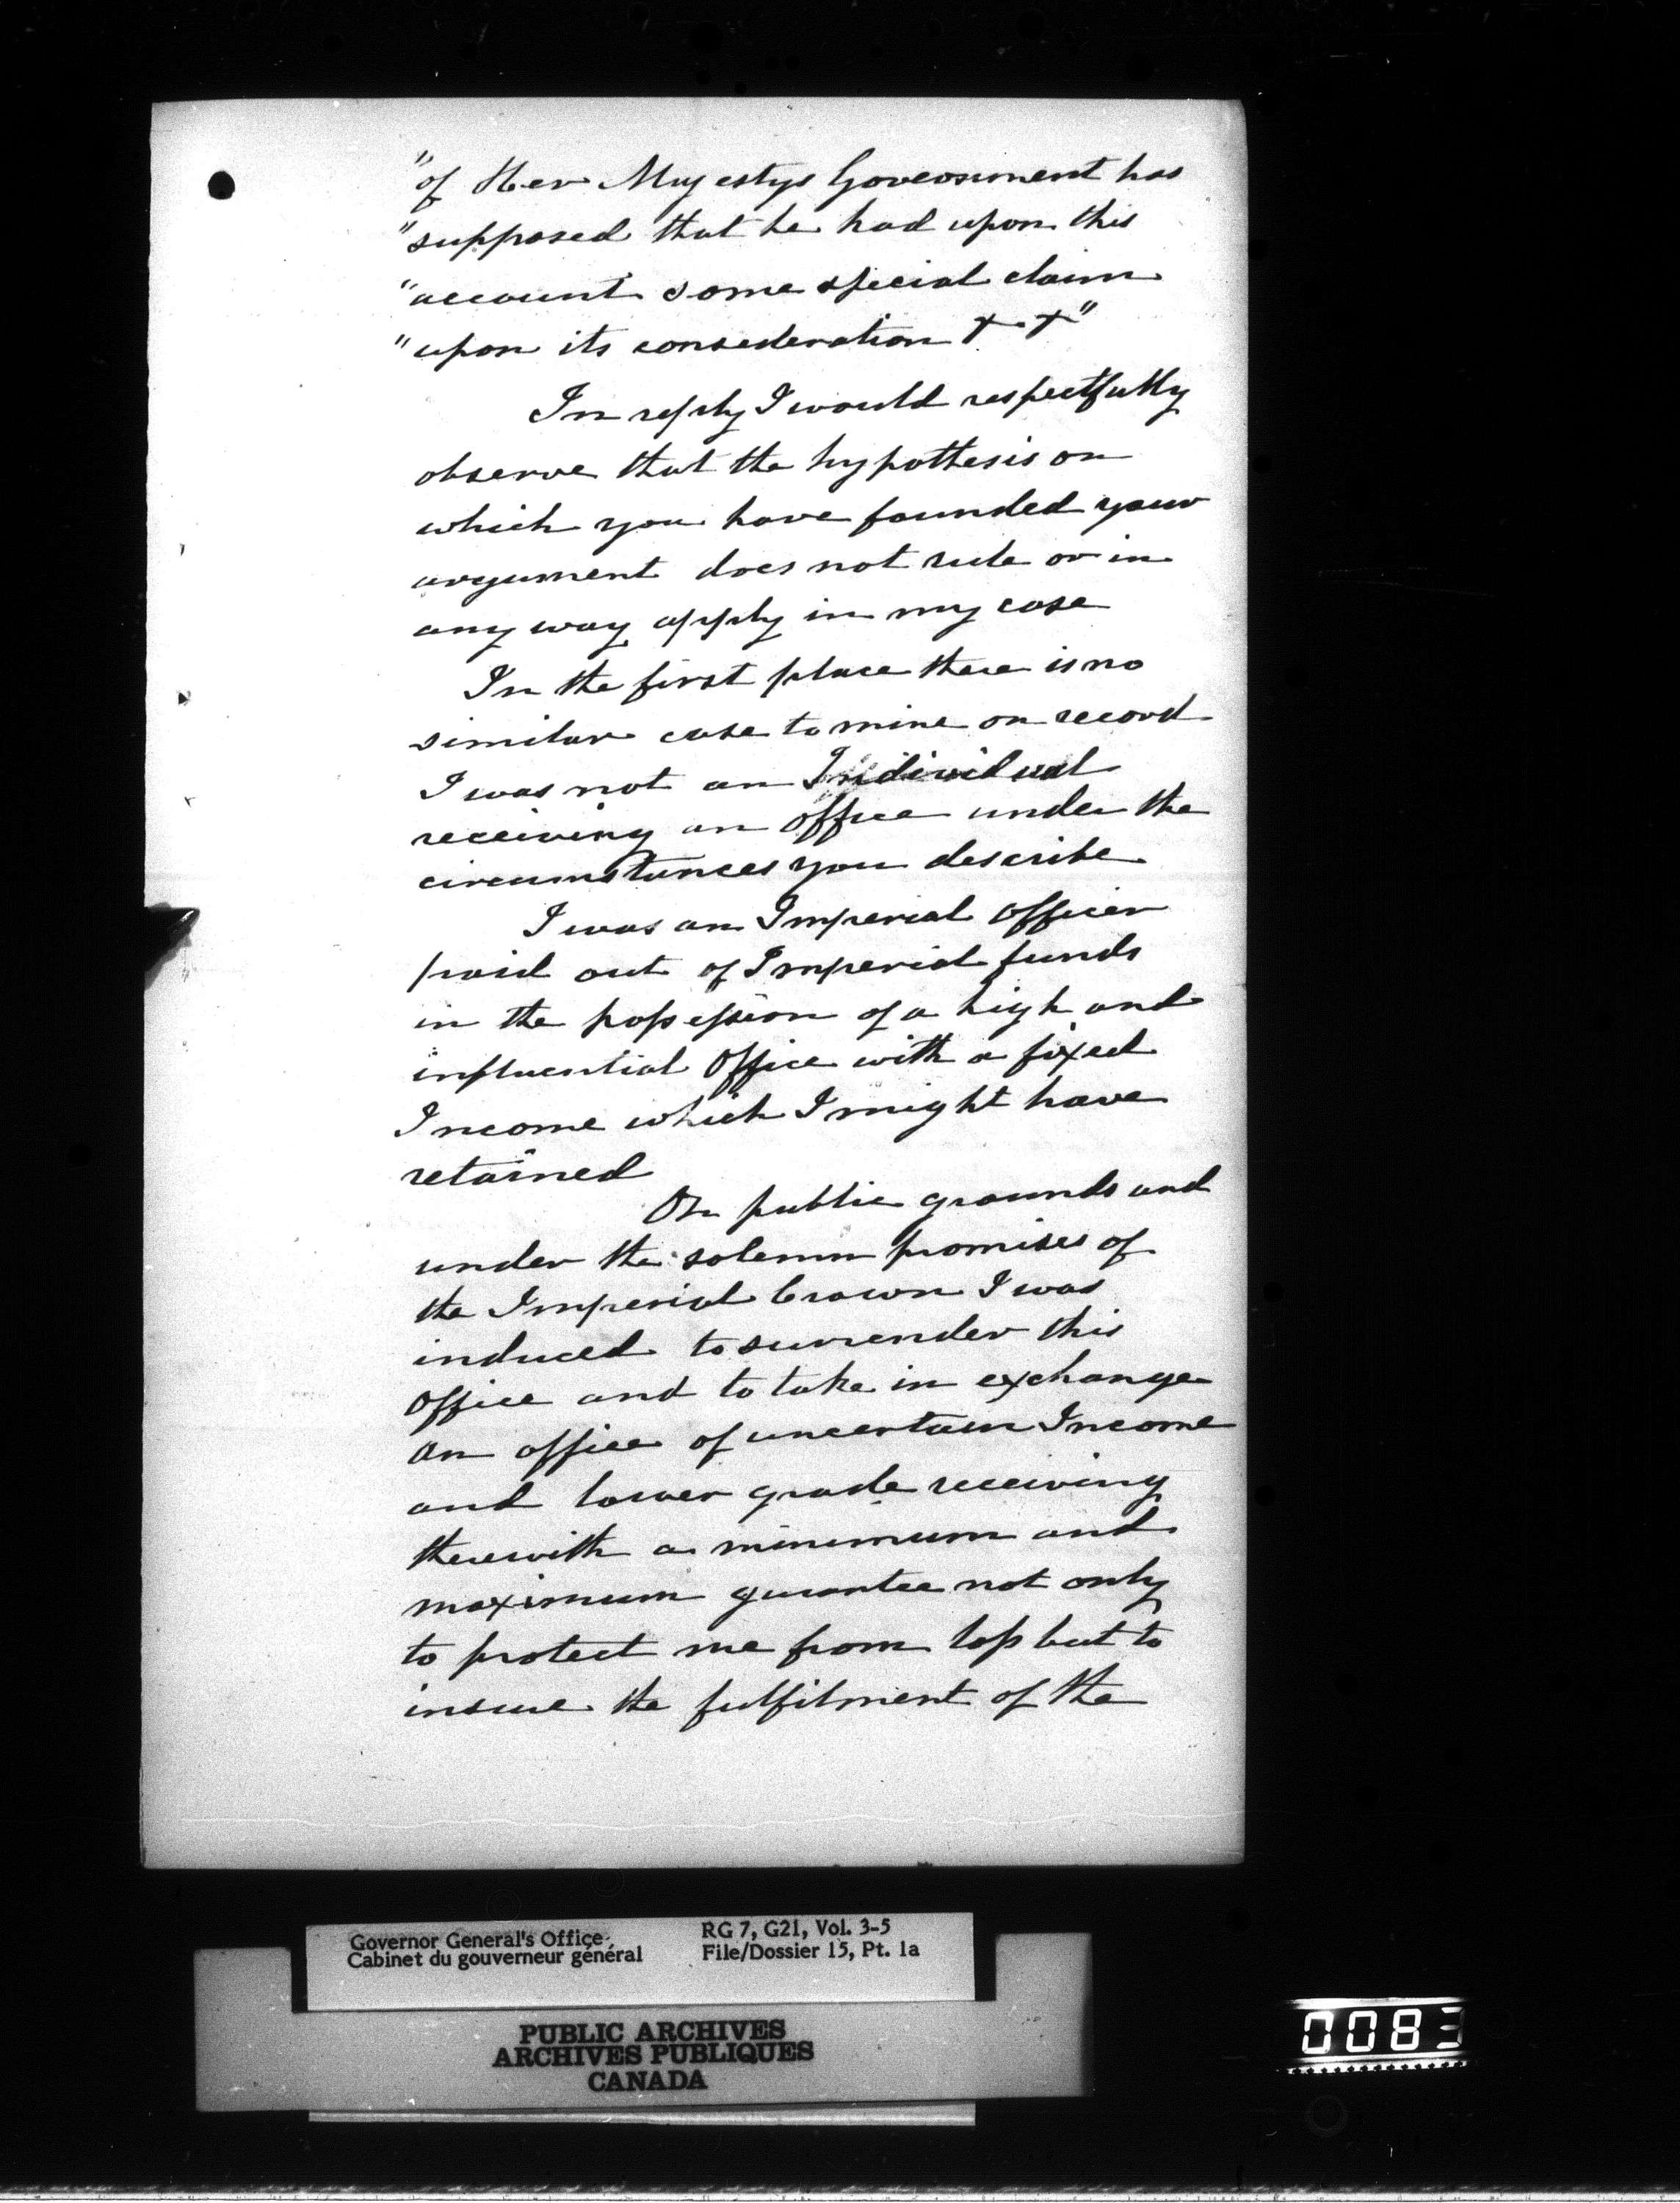 "of Her Majestys Government has
"supposed that he had upon this
"account some special claim
"upon its consederation + + "
In reply I would respectfully
observe that the hypothesis on
which you have founded your
argument does not rule or in
any way apply in my case
In the first place there is no
similar case to mine on record
I was not an Individual
receiving an office under the
circumstances you describe
I was an Imperial Officer
paid out of Imperial funds
in the possession of a high and
influential Office with a fixed
Income which I might have
retained
On public grounds and
under the solemn promises of
the Imperial Crown I was
induced to surrender this
Office and to take in exchange
an office of uncertain Income
and lower grade receiving
therewith a minimum and
maximum guarantee not only
to protect me from loss but to
insure the fulfilment of the
Governor General's Office
Cabinet du gouverneur général
RG 7, G21, Vol. 3-5
File/Dossier 15, Pt. 1a
PUBLIC ARCHIVES
ARCHIVES PUBLIQUES
CANADA
0083